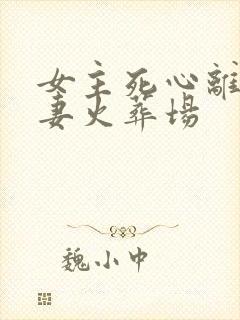 女主死心離
妻火葬場
魏小中